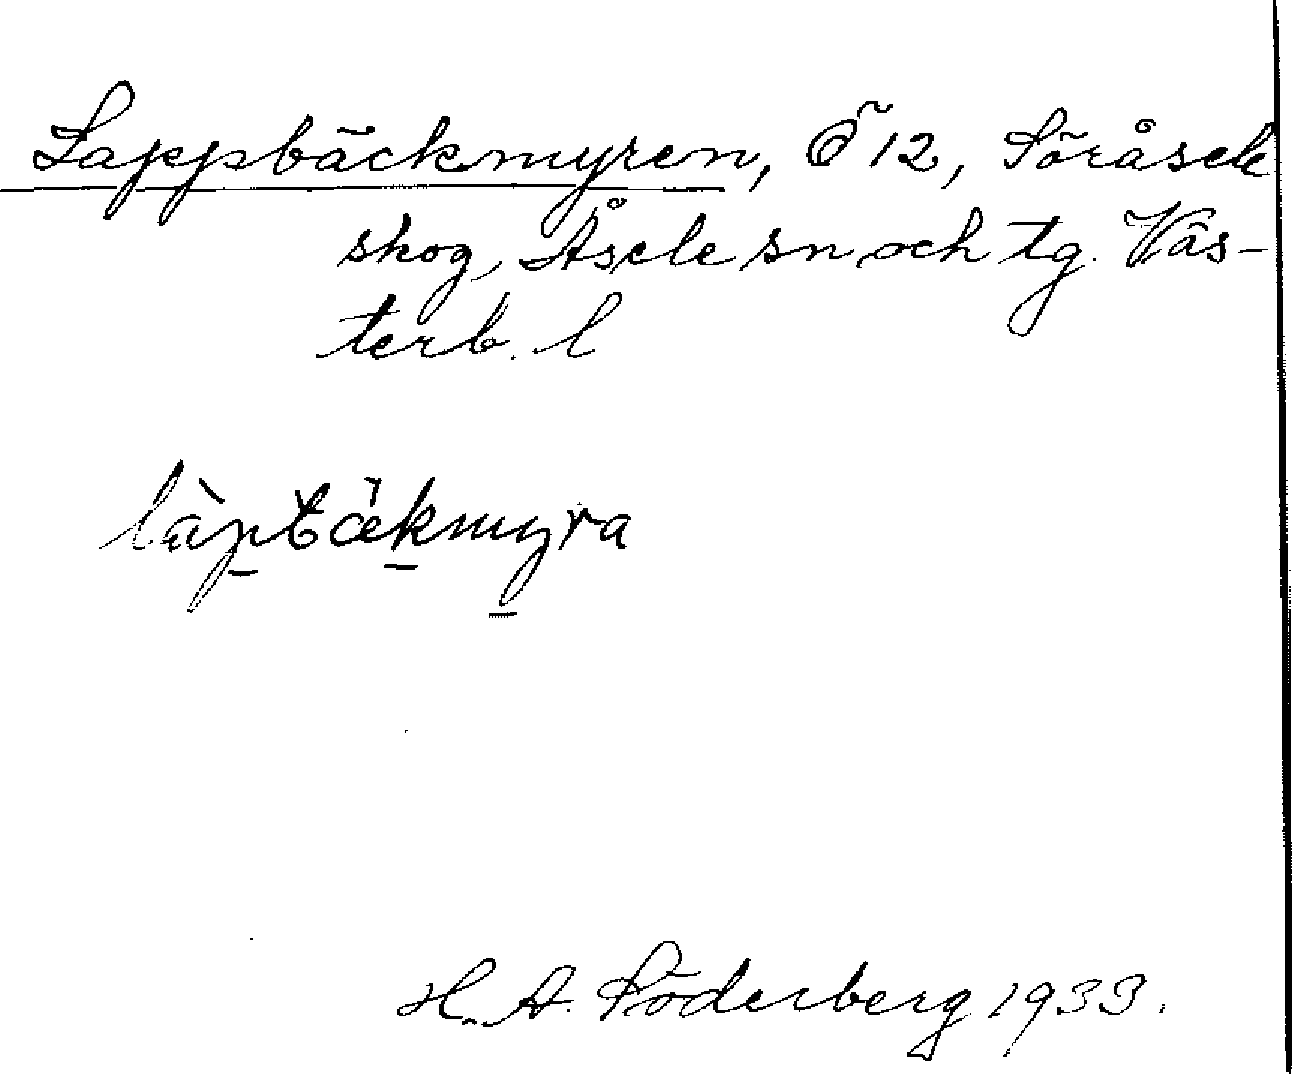 Lappbäckmyren, Ö 12, Söråsele
skog, Åsele sn och tg. Väs-
terb. l
làpbäkmyra
H. A. Söderberg 1933.